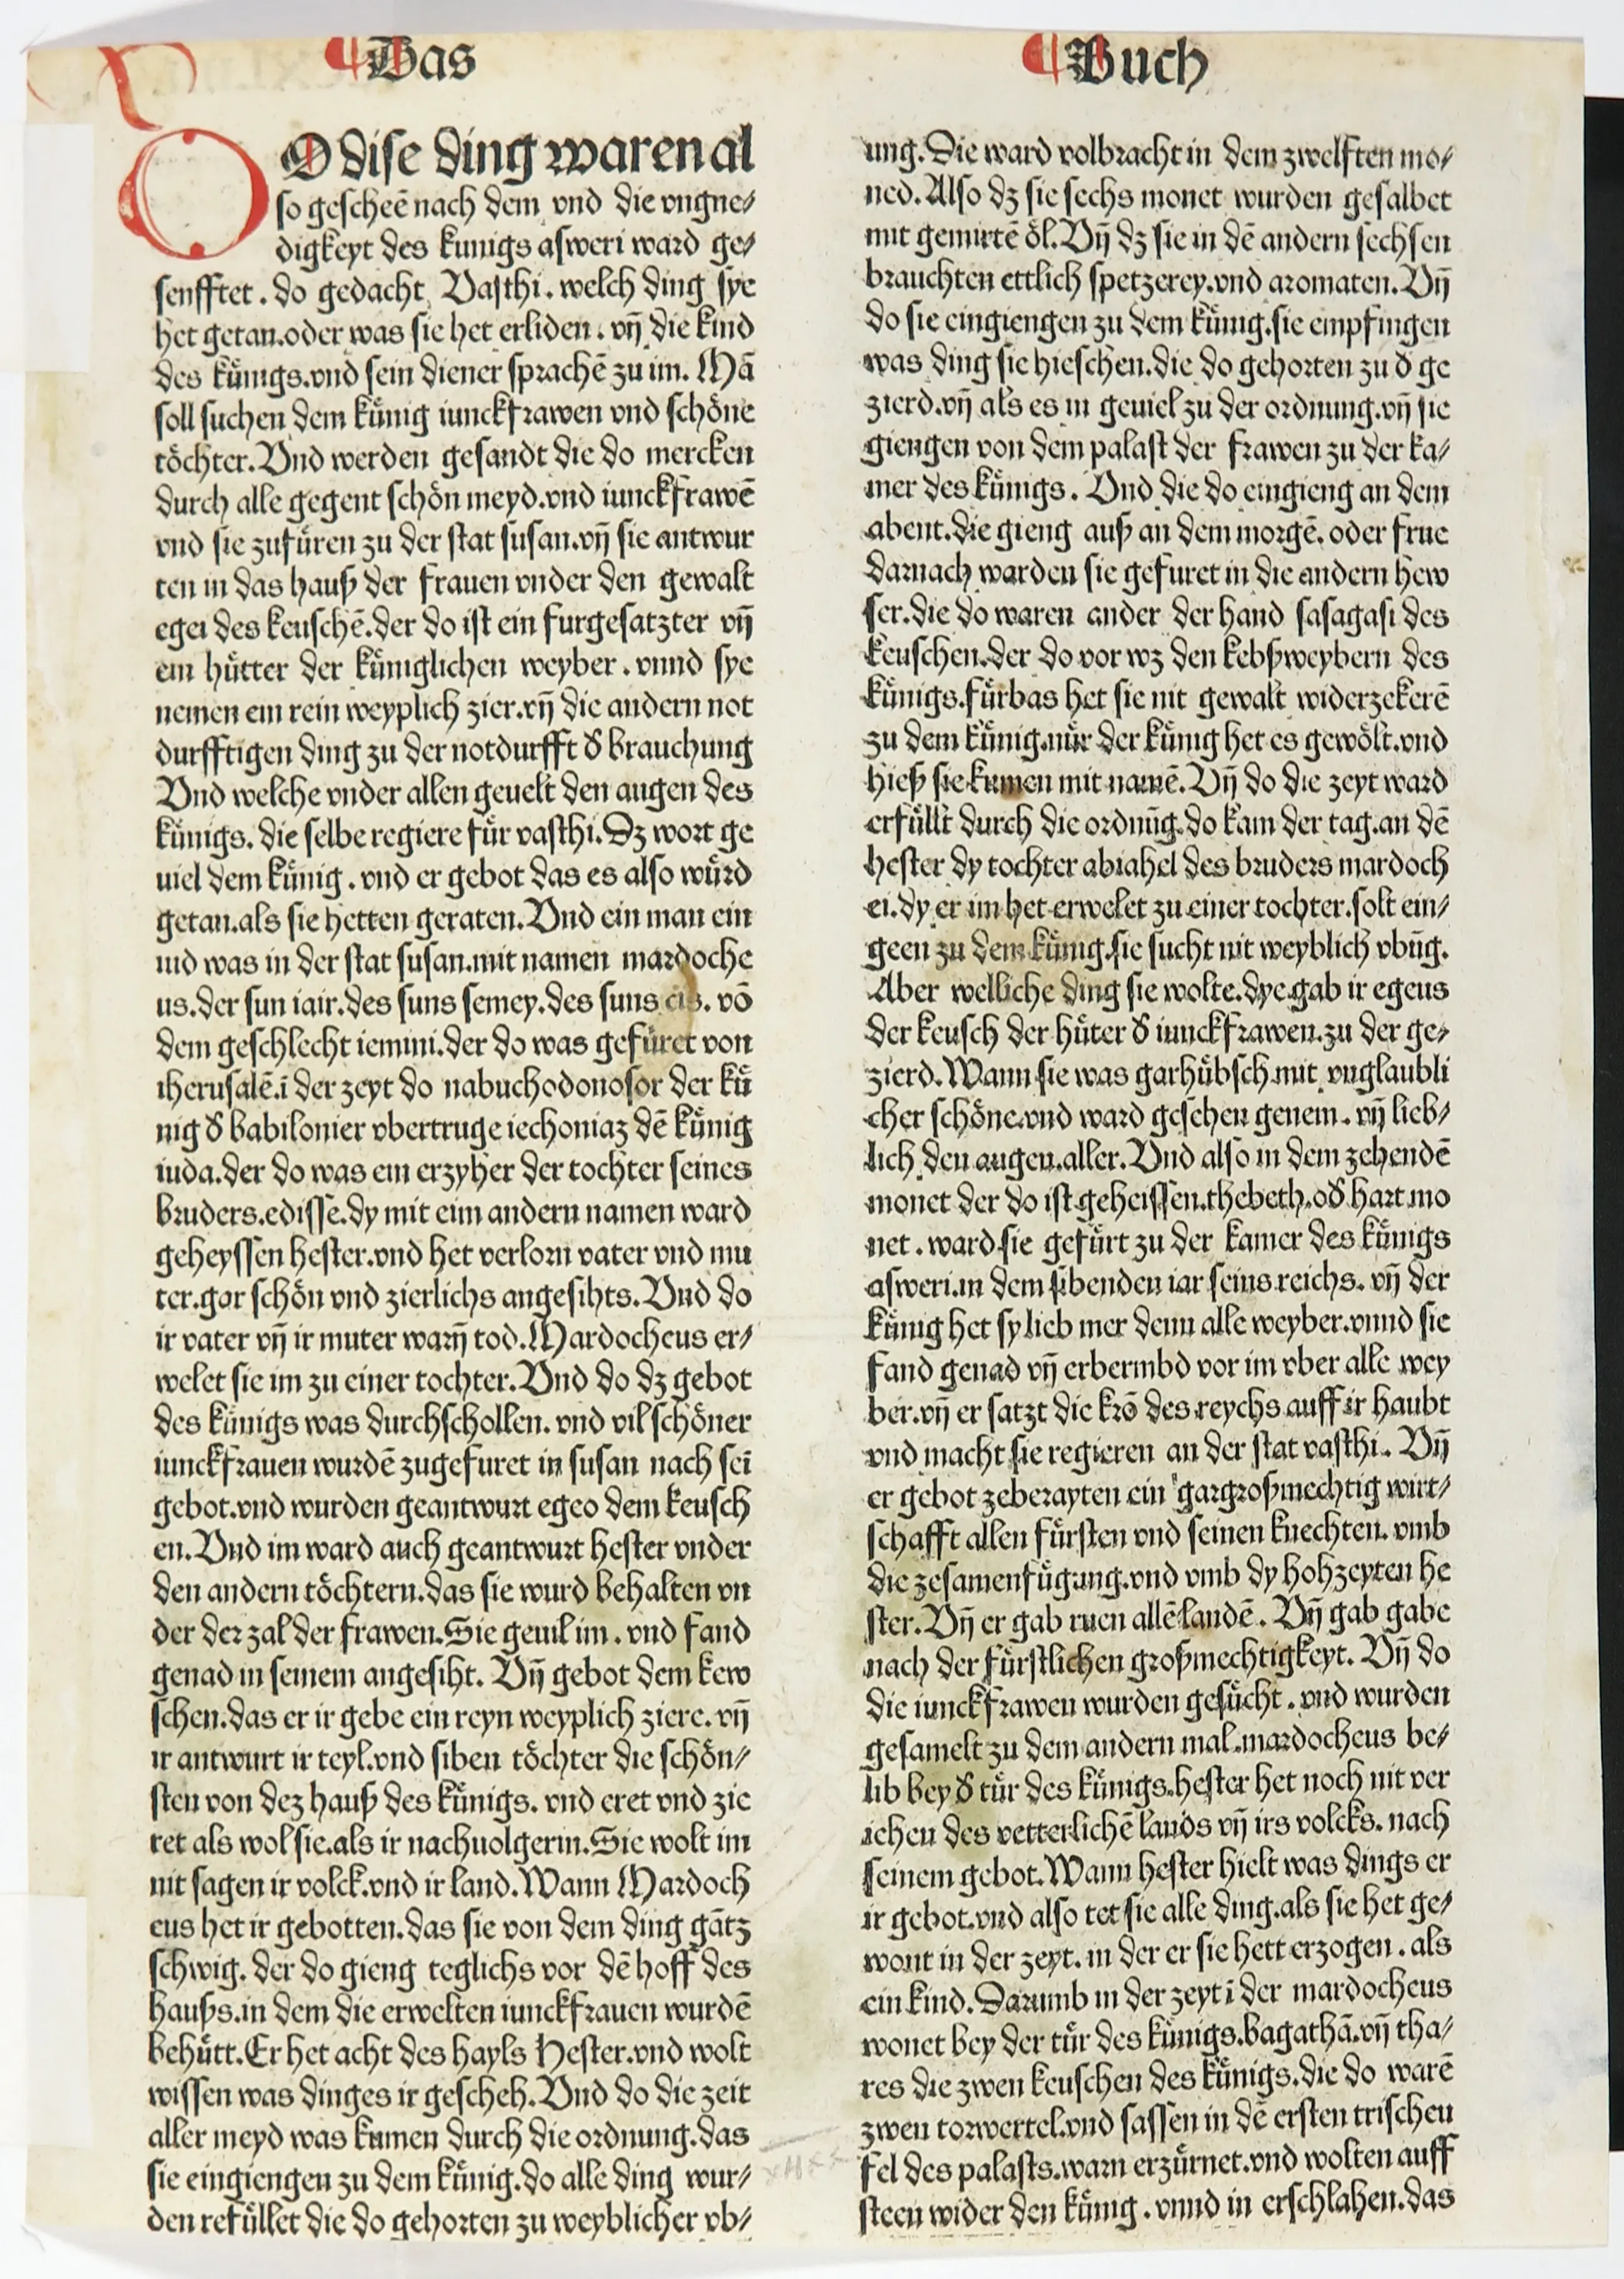 Das
Buch
DO dise ding waren al
so gescheē nach dem vnd die vngne⸗
digkeyt des kunigs asweri ward ge⸗
senfftet. do gedacht Vasthi. welch ding sye
het getan.oder was sie het erliden. vñ die kind
des kůnigs.vnd sein diener sprachē zu im. Mā
soll suchen dem kůnig iunckfrawen vnd schöne
töchter. Vnd werden gesandt die do mercken
durch alle gegent schön meyd.vnd iunckfrawē
vnd sie zufůren zu der stat susan.vñ sie antwur
ten in das hauß der frauen vnder den gewalt
egei des keuschē.der do ist ein furgesatzter vñ
ein hůtter der kůniglichen weyber. vnnd sye
nemen ein rein weyplich zier.vñ die andern not
durfftigen ding zu der notdurfft ð brauchung
Vnd welche vnder allen geuelt den augen des
kůnigs. die selbe regiere fůr vasthi. Dz wort ge
uiel dem kůnig. vnd er gebot das es also wůrd
getan.als sie hetten geraten. Vnd ein man ein
iud was in der stat susan.mit namen mardoche
us.der sun iair.des suns semey.des suns cis. vō
dem geschlecht iemini.der do was gefůret von
iherusalē.ī der zeyt do nabuchodonosor der ků
nig ð babilonier vbertruge iechoniaz dē kůnig
iuda.der do was ein erzyher der tochter seines
bruders.edisse.dy mit eim andern namen ward
geheyssen hester.vnd het verlorn vater vnd mu
ter.gar schön vnd zierlichs angesihts. Vnd do
ir vater vñ ir muter warñ tod. Mardocheus er⸗
welet sie im zu einer tochter. Vnd do dz gebot
des kůnigs was durchschollen. vnd vil schöner
iunckfrauen wurdē zugefuret in susan nach seī
gebot.vnd wurden geantwurt egeo dem keusch
en. Vnd im ward auch geantwurt hester vnder
den andern töchtern.das sie wurd behalten vn
der der zal der frawen. Sie geuil im. vnd fand
genad in seinem angesiht. Vñ gebot dem kew
schen.das er ir gebe ein reyn weyplich ziere. vñ
ir antwurt ir teyl.vnd siben töchter die schön⸗
sten von dez hauß des kůnigs. vnd eret vnd zie
ret als wol sie.als ir nachuolgerin. Sie wolt im
nit sagen ir volck.vnd ir land. Wann Mardoch
eus het ir gebotten.das sie von dem ding gātz
schwig. der do gieng teglichs vor dē hoff des
haußs.in dem die erwelten iunckfrauen wurdē
behůtt. Er het acht des hayls Hester.vnd wolt
wissen was dinges ir gescheh. Vnd do die zeit
aller meyd was kumen durch die ordnung.das
sie eingiengen zu dem kůnig.do alle ding wur⸗
den refůllet die do gehorten zu weyblicher vb⸗
ung. Die ward volbracht in dem zwelften mo⸗
ned. Also dz sie sechs monet wurden gesalbet
mit gemirtē öl. Vñ dz sie in dē andern sechsen
brauchten ettlich spetzerey.vnd aromaten. Vñ
do sie eingiengen zu dem kůnig.sie empfingen
was ding sie hieschen.die do gehorten zu ð ge
zierd.vñ als es in geuiel zu der ordnung.vñ sie
giengen von dem palast der frawen zu der ka⸗
mer des kůnigs. Vnd die do eingieng an dem
abent.die gieng auß an dem morgē. oder frue
darnach warden sie gefuret in die andern hew
ser.die do waren ander der hand sasagasi des
keuschen.der do vor wz den kebßweybern des
kůnigs.fůrbas het sie nit gewalt widerzekerē
zu dem kůnig.nůr der kůnig het es gewölt.vnd
hieß sie kumen mit namē. Vñ do die zeyt ward
erfůllt durch die ordnūg.do kam der tag.an dē
hester dy tochter abiahel des bruders mardoch
ei.dy er im het erwelet zu einer tochter.solt ein⸗
geen zu dem kůnig.sie sucht nit weyblich vbūg.
Aber welliche ding sie wolte.dye gab ir egeus
der keusch der hůter ð iunckfrawen.zu der ge⸗
zierd. Wann sie was garhůbsch.mit vnglaubli
cher schöne.vnd ward gesehen genem. vñ lieb⸗
lich den augen.aller. Vnd also in dem zehendē
monet der do ist geheissen.thebeth.oð hart mo
net. ward sie gefůrt zu der kamer des kůnigs
asweri.in dem sibenden iar seins reichs. vñ der
kůnig het sy lieb mer denn alle weyber.vnnd sie
fand genad vñ erbermbd vor im vber alle wey
ber.vñ er satzt die krō des reychs auff ir haubt
vnd macht sie regieren an der stat vasthi. Vñ
er gebot zeberayten ein gargroßmechtig wirt⸗
schafft allen fůrsten vnd seinen knechten. vmb
die zesamenfůgung.vnd vmb dy hohzeyten he
ster. Vñ er gab ruen allē landē. Vñ gab gabe
nach der fůrstlichen großmechtigkeyt. Vñ do
die iunckfrawen wurden gesůcht. vnd wurden
gesamelt zu dem andern mal.mardocheus be⸗
lib bey ð tůr des kůnigs.hester het noch nit ver
iehen des vetterlichē lands vñ irs volcks. nach
seinem gebot. Wann hester hielt was dings er
ir gebot.vnd also tet sie alle ding.als sie het ge⸗
wont in der zeyt. in der er sie hett erzogen. als
ein kind. Darumb in der zeyt ī der mardocheus
wonet bey der tůr des kůnigs.bagathā.vñ tha⸗
res die zwen keuschen des kůnigs.die do warē
zwen torwertel.vnd sassen in dē ersten trischeu
fel des palasts.warn erzůrnet.vnd wolten auff
steen wider den kůnig. vnnd in erschlahen.das